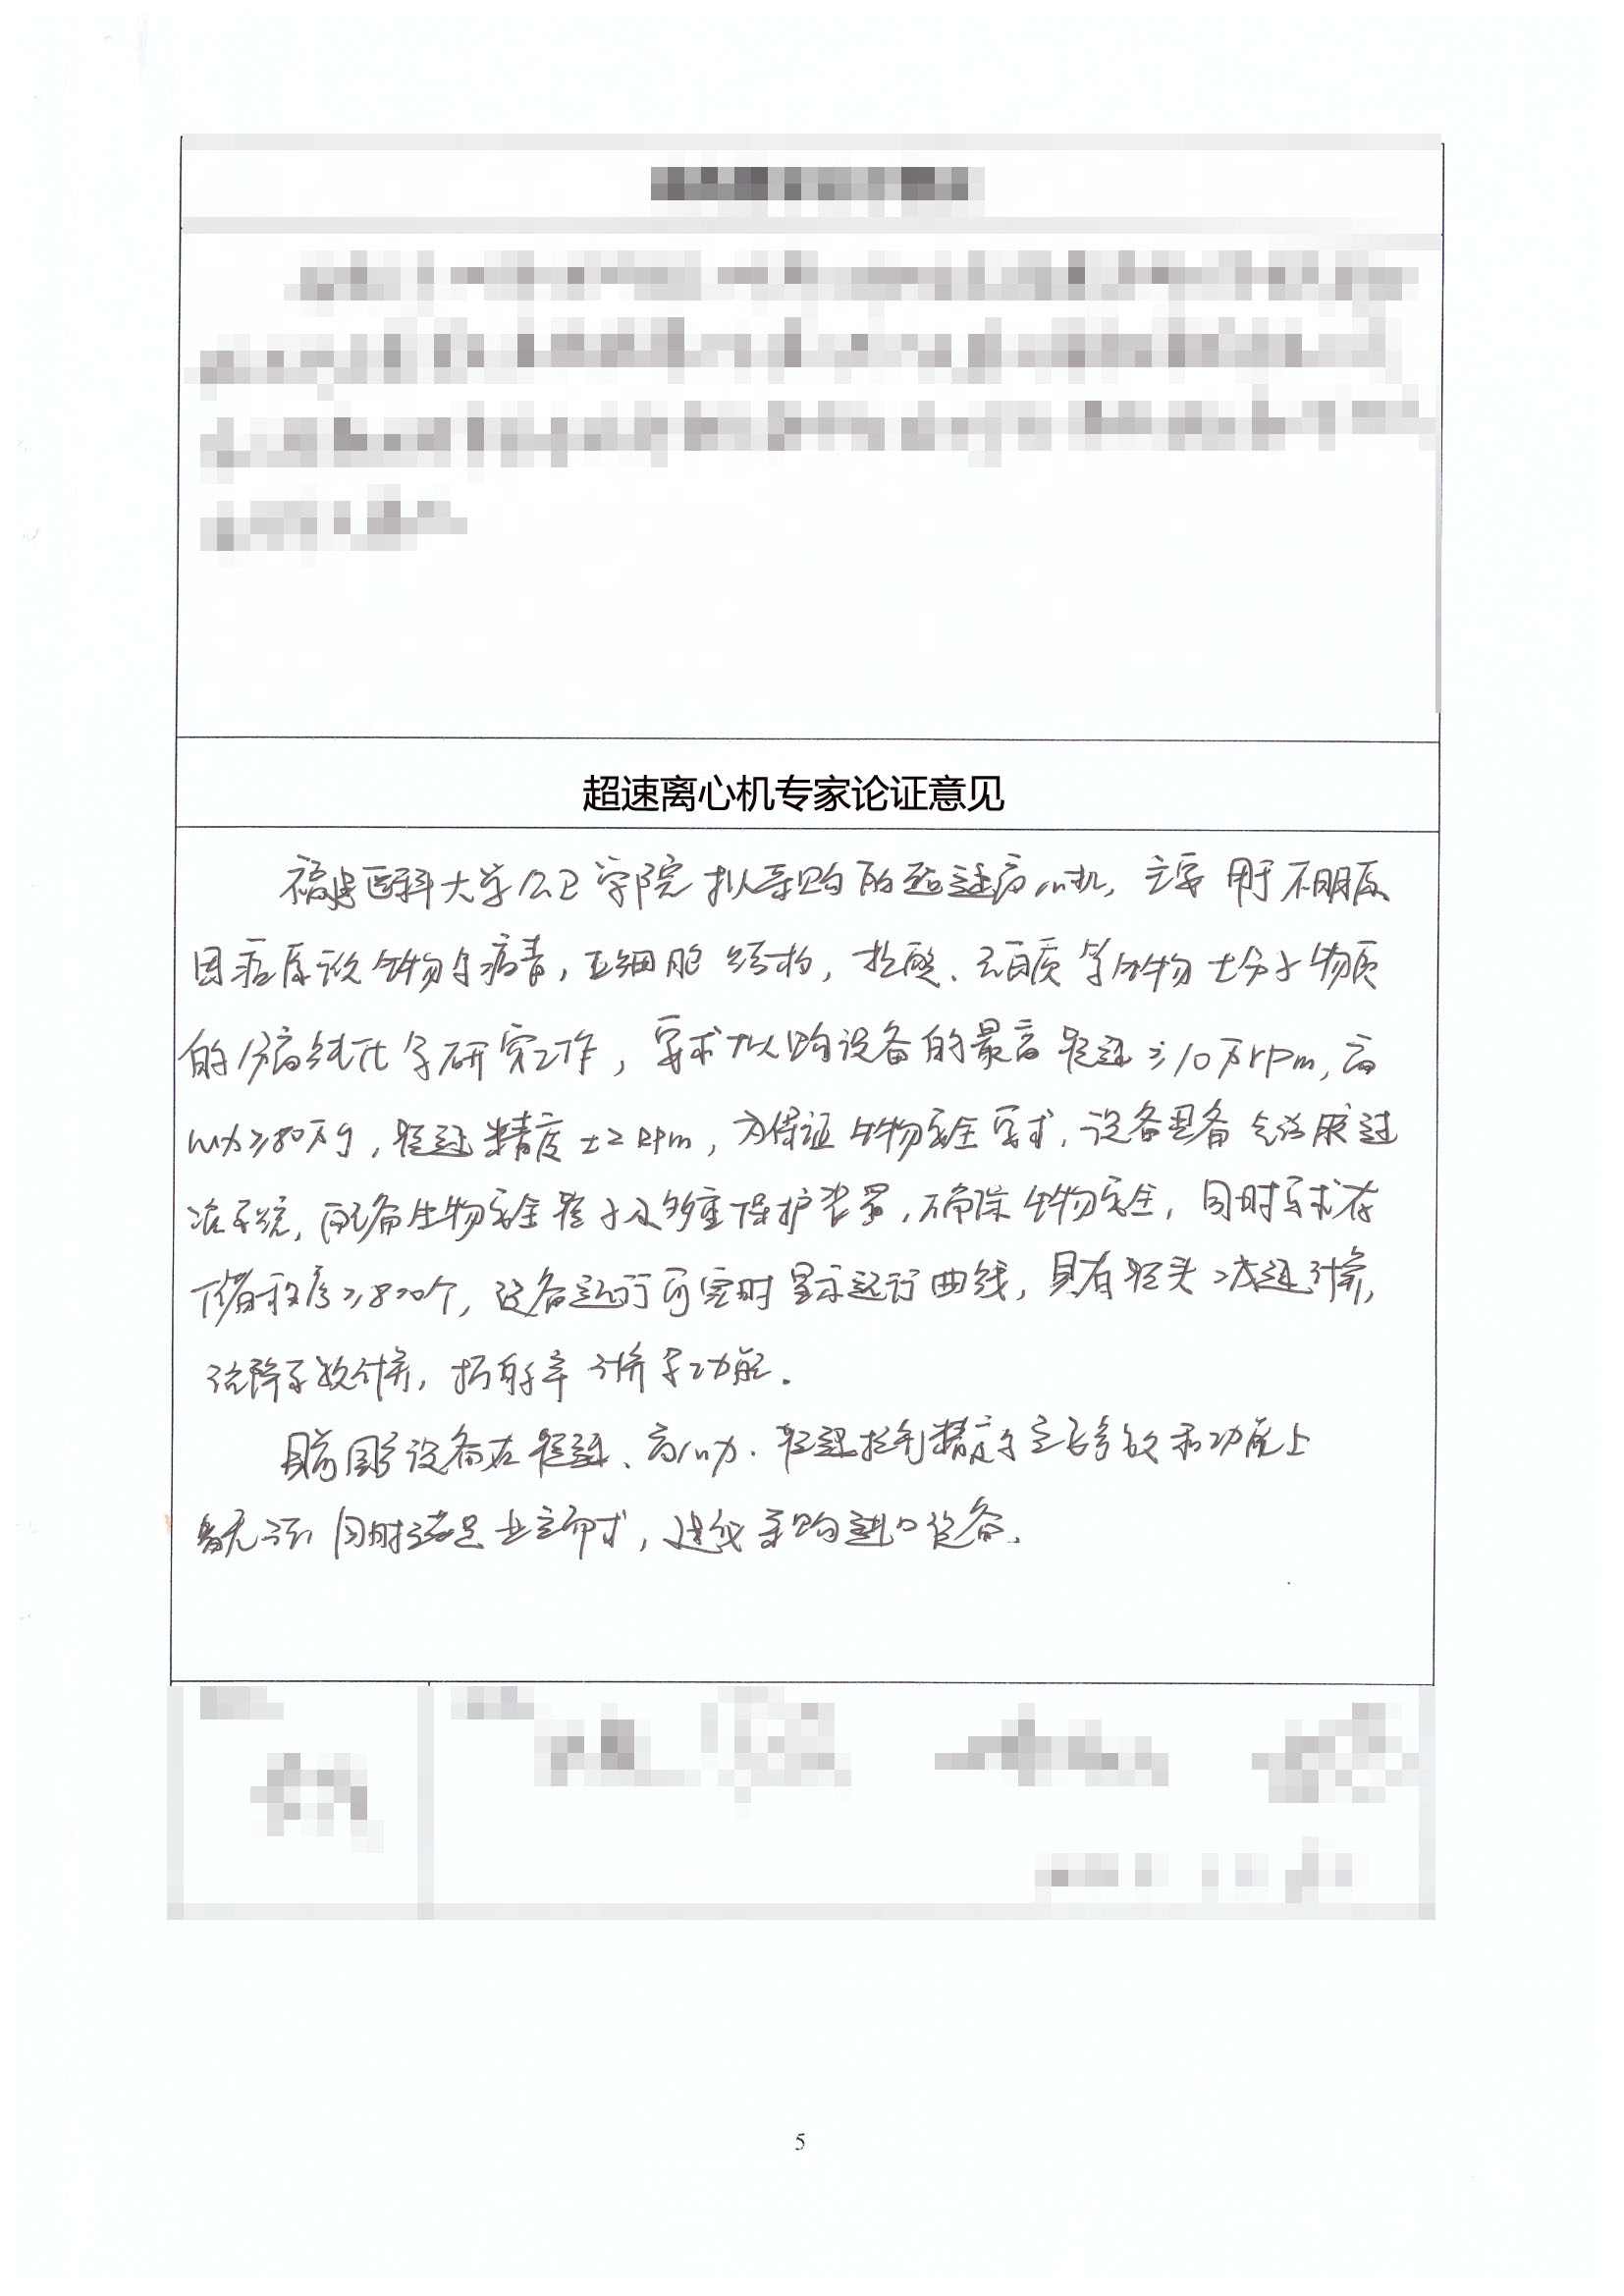 超速离心机专家论证意见
福建医科大学公卫学院拟采购的超速离心机，主要用于不明原
因病原微生物与病毒，亚细胞结构，核酸、蛋白质等生物大分子物质
的分离纯化等研究工作，要求拟购设备的最高转速≥10万rpm，离
心力≥80万g，转速精度±2rpm，为保证生物安全要求，设备具备
配备生物安全转子及多重保护装置，确保生物安全，同时要求存
储程序≥ 个，设备运行可实时显示运行曲线，具有转头减速计算，
沉降系数计算，折射率计算等功能。
目前国产设备在转速、离心力、转速控制精度等主要参数和功能上
暂无法同时满足上述需求，建议采购进口设备。
5